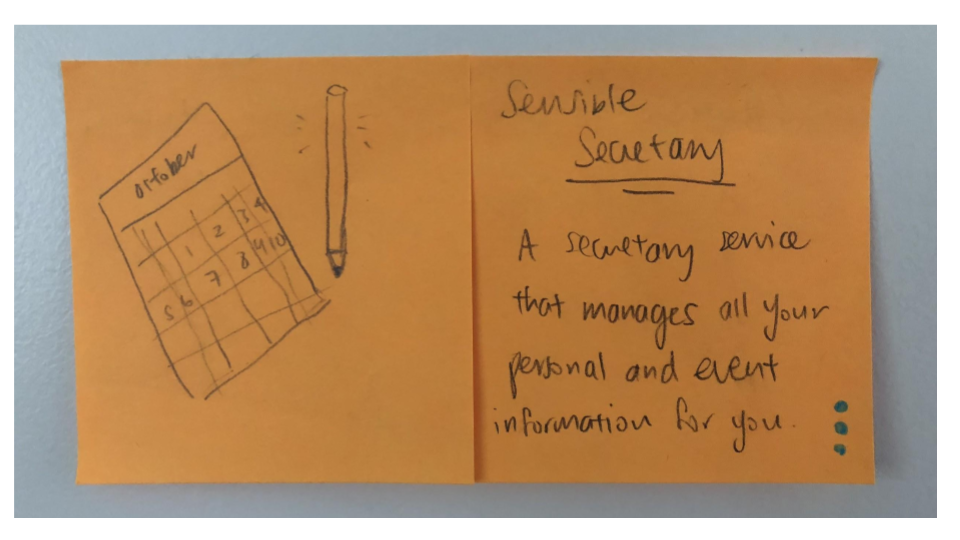 October
1 2 3 4
5 6 7 8 9 10
Sensible
Secretary
A secretary service
that manages all your
personal and event
information for you.